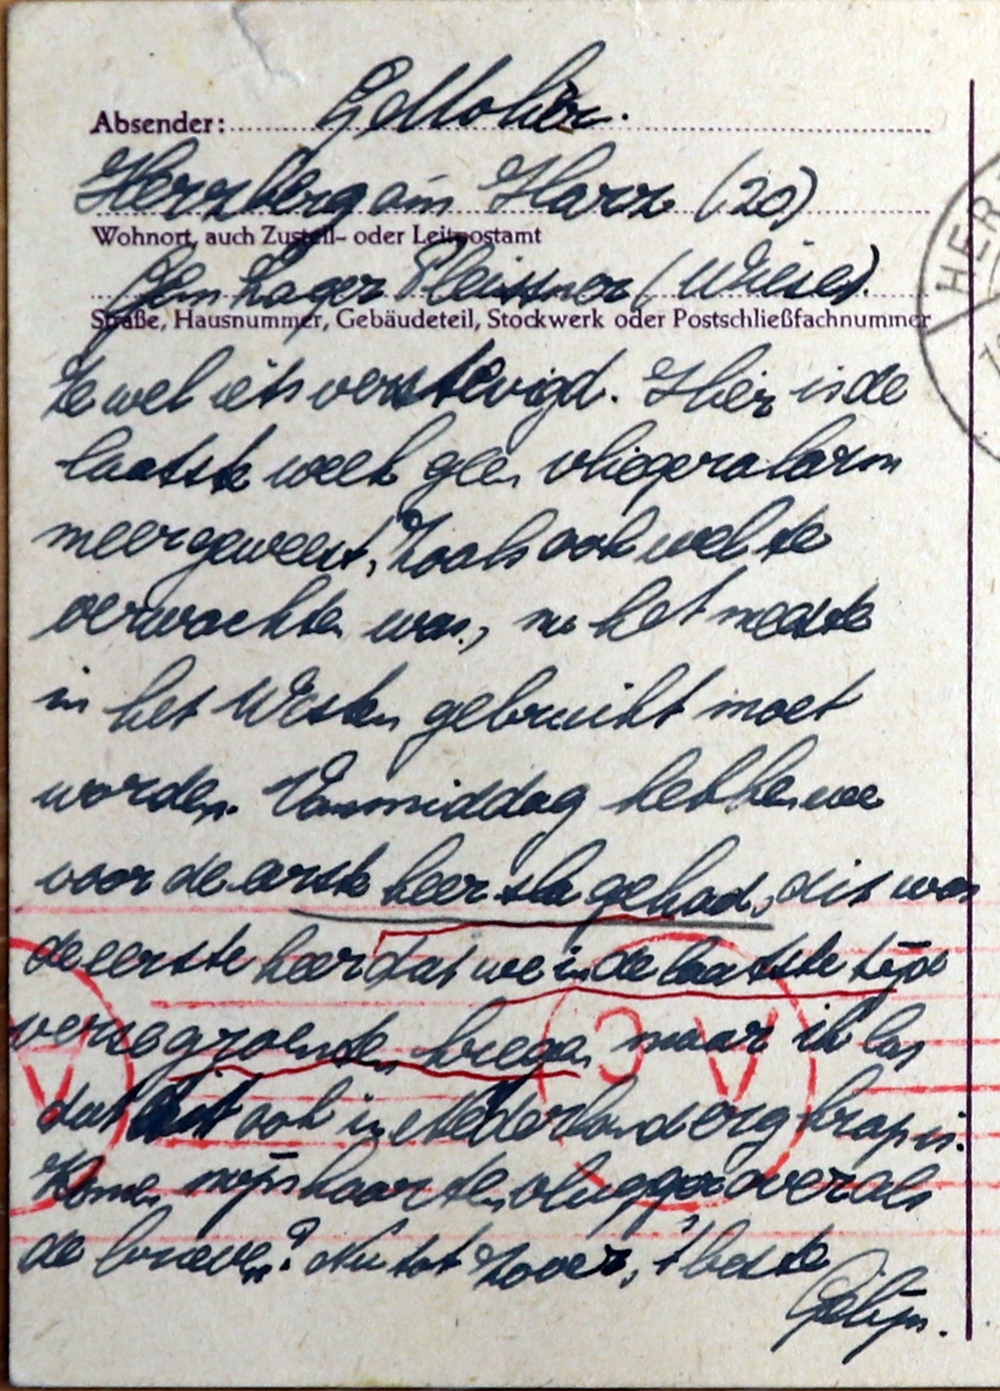 Absender: G Molier.
Herzberg am Harz (20)
Wohnort, auch Zustell- oder Leitpostamt
Lager Pleissner (Wiese).
Straße, Hausnummer, Gebäudeteil, Stockwerk oder Postschließfachnummer
te wel iets verstevigd. Hier is de
laatste week geen vliegeralarm
meer geweest, zoals ook wel te
verwachten was, nu het meeste
in het Westen gebruikt moet
worden. Vanmiddag hebben we
voor de eerste keer sla gehad, dit was
de eerste keer dat we in de laatste tijd
versche groenten kregen maar ik las
dat dit ook in Nederland erg krap is.
Komen mijn kaarten vlugger over als
de brieven? Nu tot zover, 't beste
Gelijn.
HER
V
C A